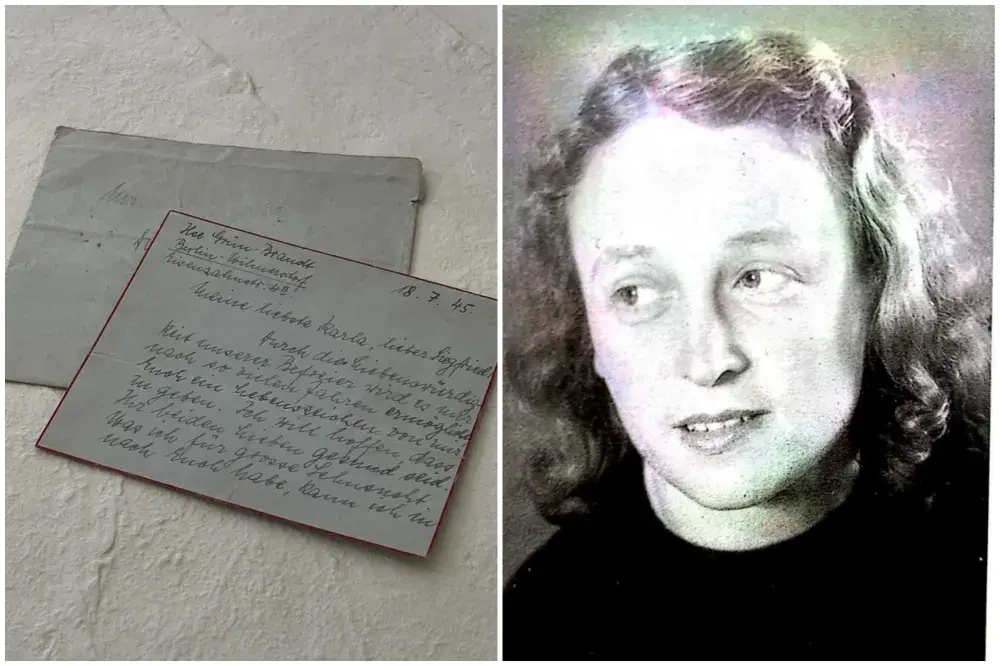 Mrs.
Ilse Grün-Brandt
Berlin-Wilmersdorf
Eisenzahnstr. 4 II
18. 7. 45.
Meine liebste Karla, lieber Siegfried
Durch die Liebenswürdig
keit unserer Befreier wird es mir
nach so vielen Jahren ermöglicht
Euch ein Lebenszeichen von mir
zu geben. Ich will hoffen, dass
Ihr beiden Lieben gesund seid.
Was ich für grosse Sehnsucht
nach Euch habe, kann ich in